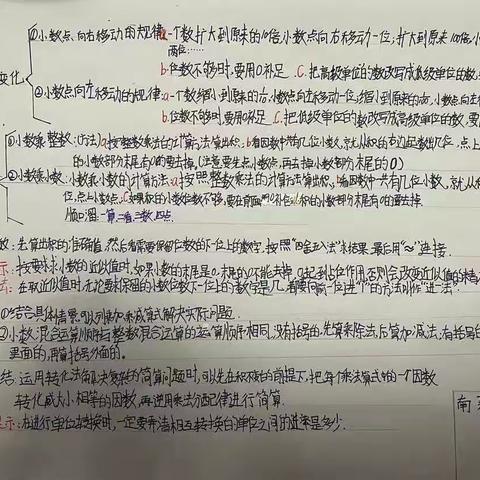 ①小数点向右移动的规律 a一个数扩大到原来的10倍,小数点向右移动一位;扩大到原来100倍,小数
两位……
变化
b位数不够时,要用0补足 C.把高级单位的数改写成低级单位的数,
②小数点向左移动的规律:a一个数缩小到原来的 小数点向左移动一位,缩小到原来的 小数点向左
b位数不够时,要用0补足 C.把低级单位的数改写成高级单位的数,要
①小数乘整数:(方法)a按整数乘法的计算方法算出积;b看因数中共有几位小数,就从积的右边起数出几位,点上
的小数部分末尾有0的要去掉.(注意:要先点小数点,再去掉小数部分末尾的0)
②小数乘小数:小数乘小数的计算方法:a按照整数乘法的计算方法算出积;b看因数中一共有几位小数,就从积
位,点上小数点;C如果积的小数位数不够,要在前面用0补位;d积的小数部分末尾有0的要去掉
顺口溜:一算二看三数四点
数:先算出积的准确值,然后看需要保留位数的下一位上的数字,按照“四舍五入”法求结果,最后用“≈”连接.
示:按要求求小数的近似值时,如果小数的末尾是0,末尾的0不能去掉,0起到占位作用,否则会改变近似值的精
法:在取近似值时,无论要保留的小数位数下一位上的数字是几,都要向前一位进“1”的方法叫作“进一法”.
①结合具体情景,可以列乘加、乘减算式解决实际问题.
②小数混合运算顺序与整数混合运算的运算顺序相同,没有括号的,先算乘除法,后算加减法;有括号的
里面的,再算括号外面的.
结:运用转化法解决复杂的简算问题时,可以先在积不变的前提下,把每个乘法算式中的一个因数
转化成大小相等的因数,再运用乘法分配律进行简算.
示:在进行单位转换时,一定要弄清相互转换的单位之间的进率是多少.
南